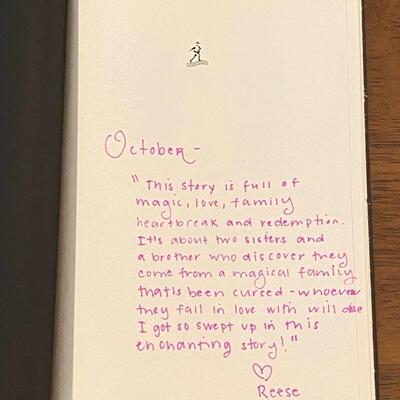 October-
"This story is full of
magic, love, family
heartbreak and redemption.
It's about two sisters and
a brother who discover they
come from a magical family
that's been cursed-whoever
they fall in love with will die
I got so swept up in this
enchanting story!"
Reese